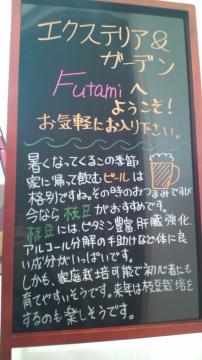 エクステリア&
ガーデン
Futamiへ
ようこそ!
お気軽にお入り下さい。
暑くなってくるこの季節
家に帰って飲むビールは
格別ですね。その時のおつまみですが
今なら枝豆がおすすめです。
枝豆にはビタミン豊富肝臓強化、
アルコール分解の手助けなど体に良
い成分がいっぱいです。
しかも、家庭栽培可能で初心者にも
育てやすいそうです。来年は枝豆栽培を
するのも楽しそうです。